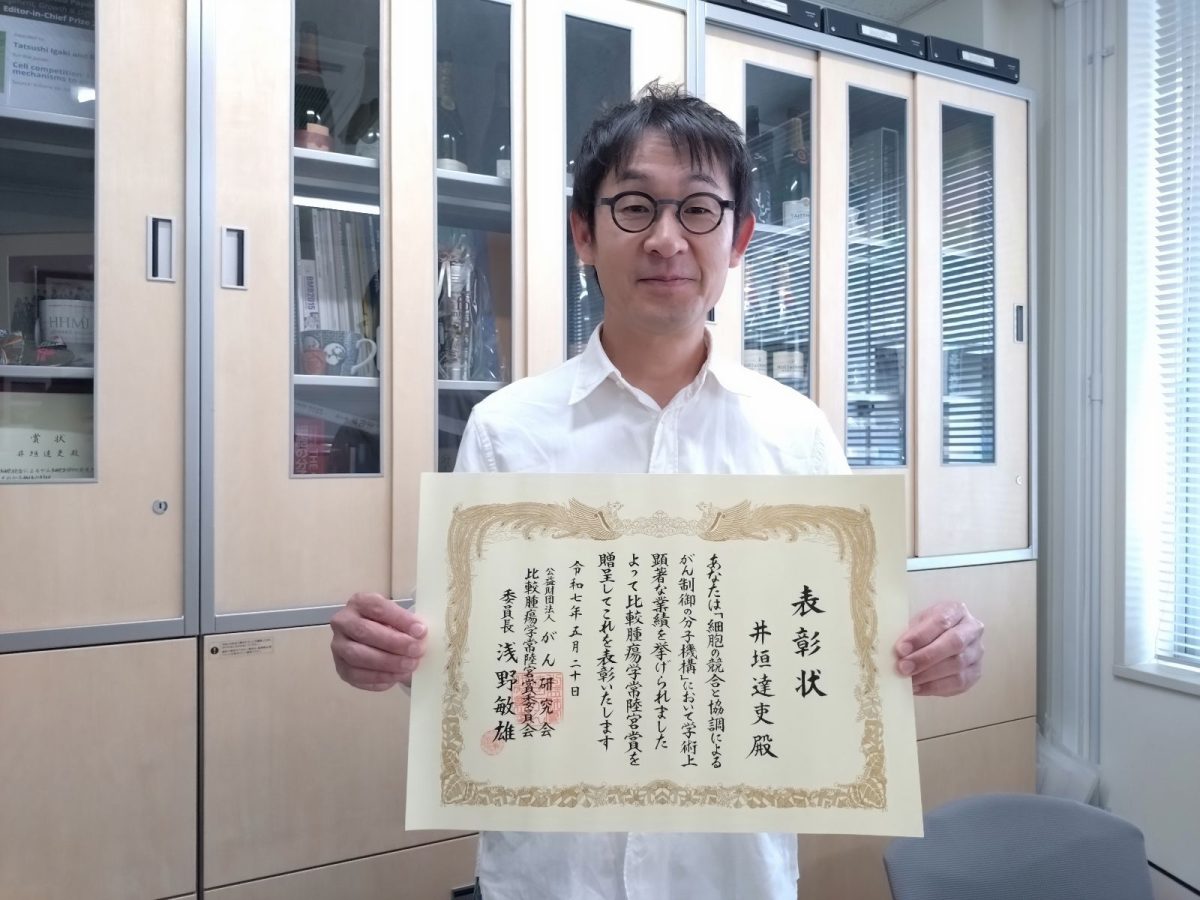 表彰状
井垣達吏殿
あなたは「細胞の競合と協調による
がん制御の分子機構」において学術上
顕著な業績を挙げられました
よって比較腫瘍学常陸宮賞を
贈呈してこれを表彰いたします
令和七年五月二十日
公益財団法人 がん研究会
比較腫瘍学常陸宮賞委員会
委員長 浅野敏雄
Editor-in-Chief Prize
Tatsushi Igaki and
Cell competition
mechanisms to
HHMI
賞状
井垣達吏殿
BMB2015